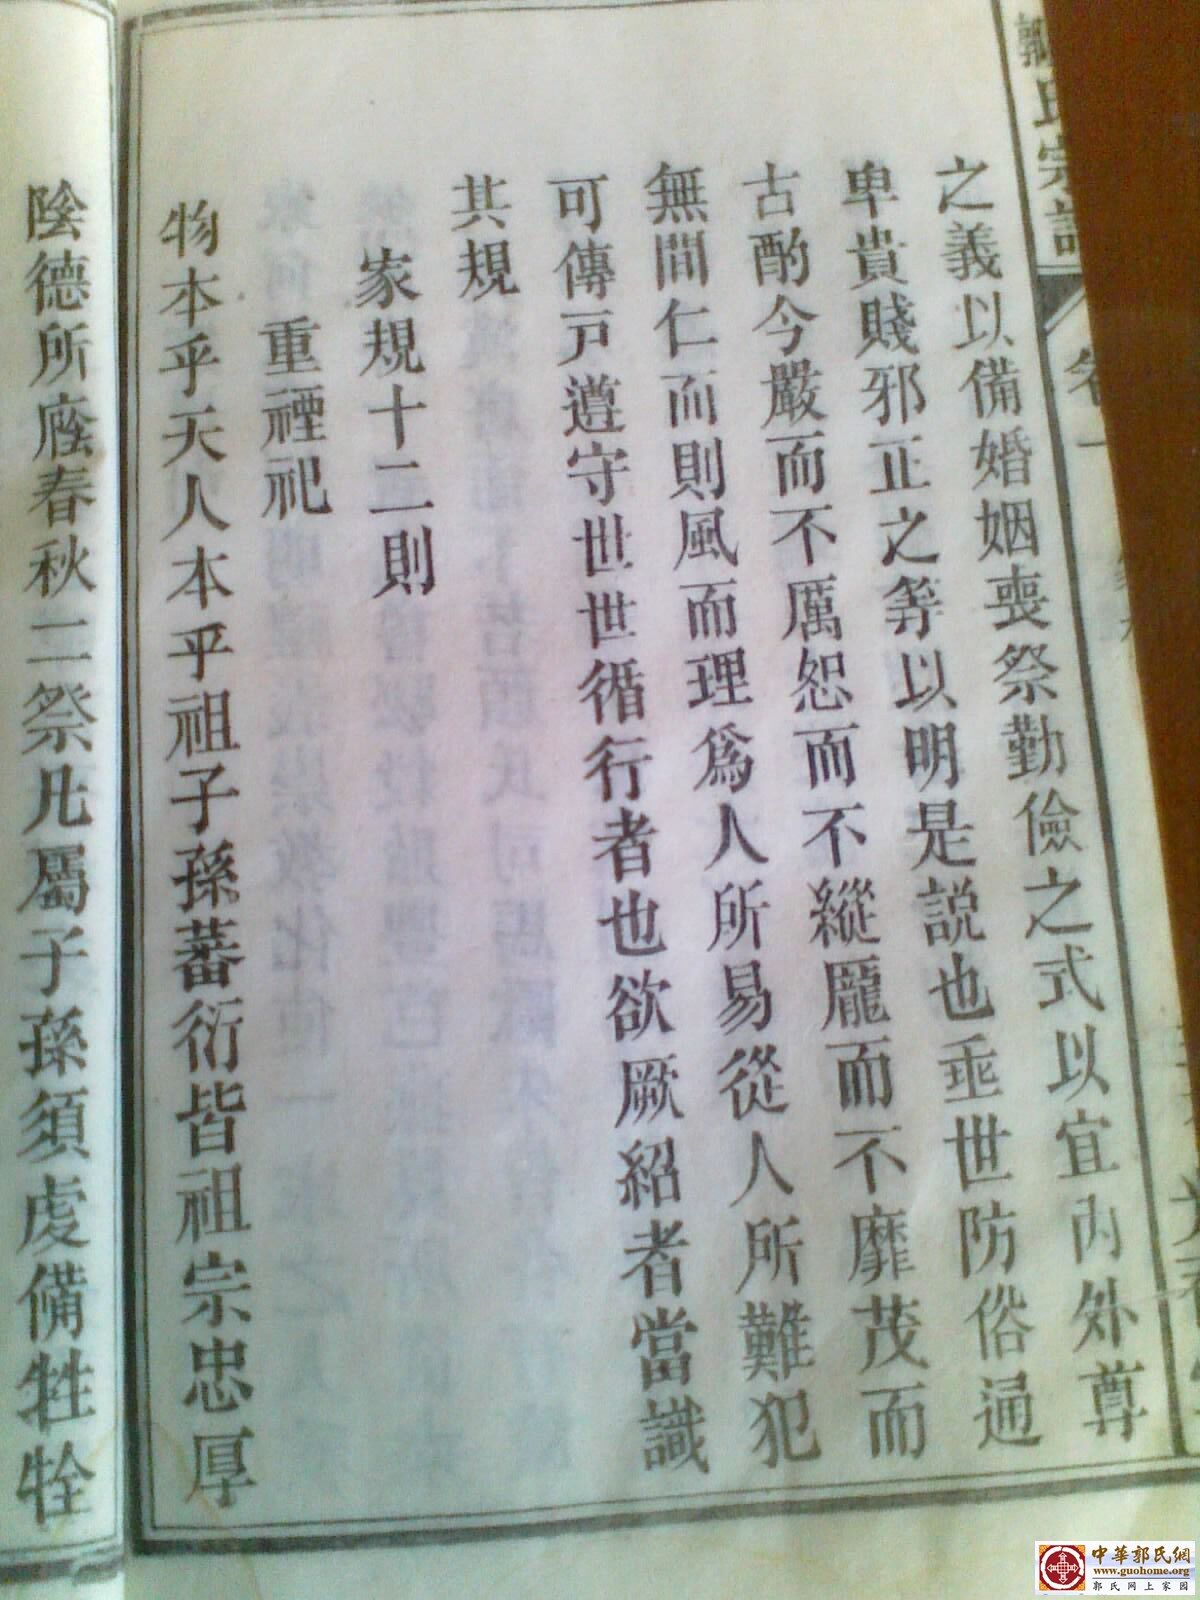 郭氏宗譜
卷一
之義以備婚姻喪祭勤儉之式以宜內外尊
卑貴賤邪正之等以明是説也垂世防俗通
古酌今嚴而不厲恕而不縱龐而不靡茂而
無間仁而則風而理爲人所易從人所難犯
可傳戸遵守世世循行者也欲厥紹者當識
其規
家規十二則
重禋祀
物本乎天人本乎祖子孫蕃衍皆祖宗忠厚
陰德所廕春秋二祭凡屬子孫須虔備牲牷
中華郭氏網
www.guohome.org
郭氏网上家园